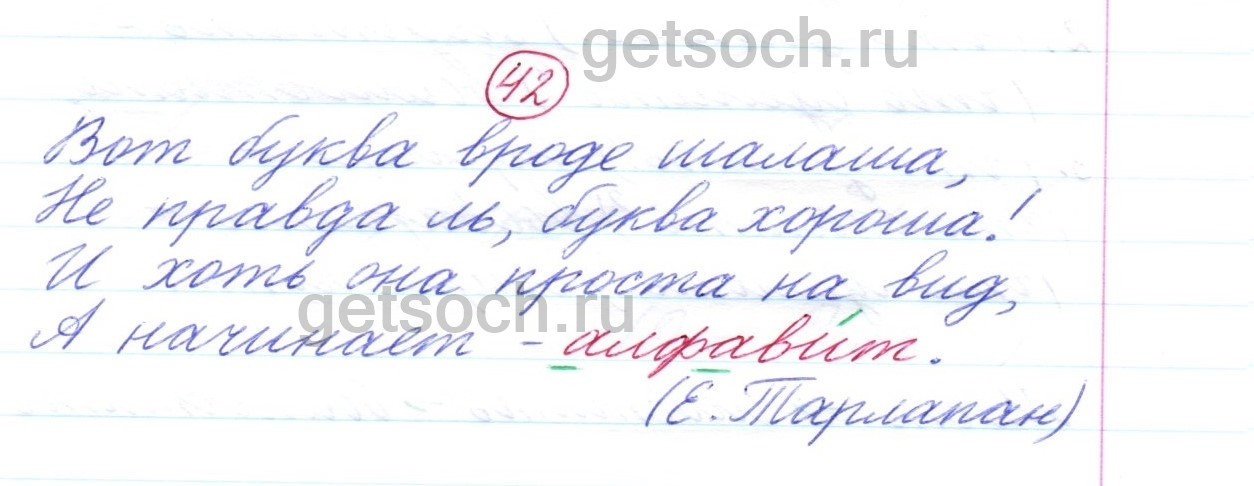 getsoch.ru
42
Вот буква вроде шалаша,
Не правда ль, буква хороша!
И хоть она проста на вид,
getsoch.ru
А начинает - алфави́т.
(Е. Тарлапан)